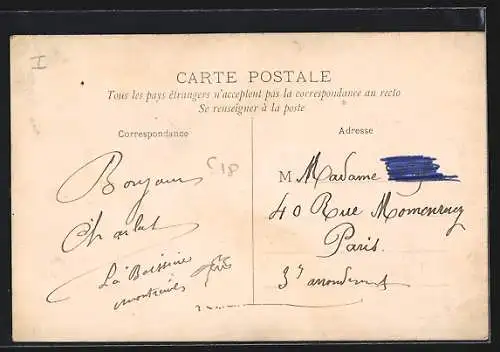 I
CARTE POSTALE
Tous les pays étrangers n'acceptent pas la correspondance au recto
Se renseigner à la poste
Correspondance
Adresse
C18
Bonjour
M Madame
40 Rue Momenrency
Paris
3e arrondment
La